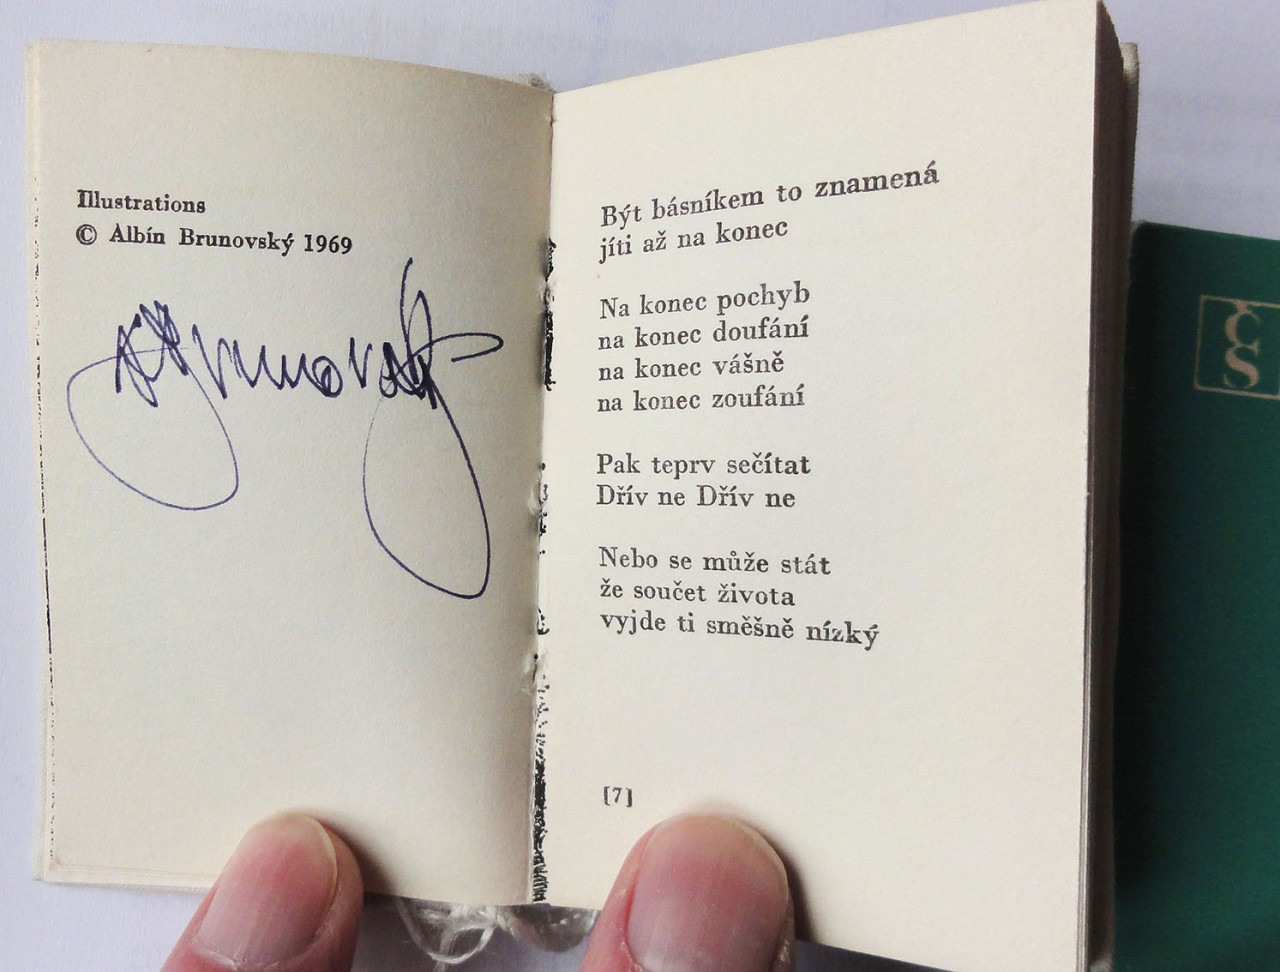 Illustrations
© Albín Brunovský 1969
ABrunovský
Být básníkem to znamená
jíti až na konec
Na konec pochyb
na konec doufání
na konec vášně
na konec zoufání
Pak teprv sečítat
Dřív ne Dřív ne
Nebo se může stát
že součet života
vyjde ti směšně nízký
[7]
ČS